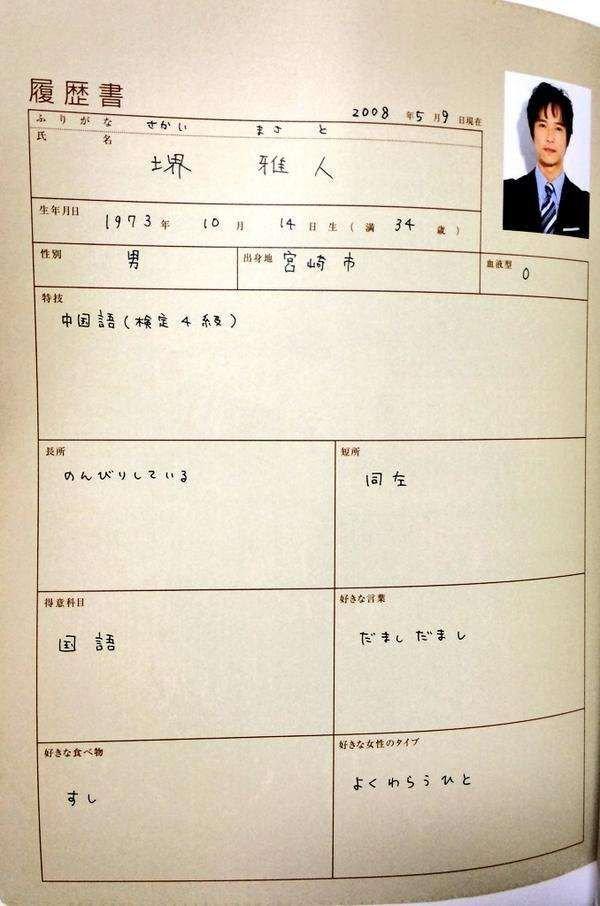 履歴書
2008 年 5 月 9 日現在
ふりがな さかい まさと
氏名 堺 雅人
生年月日 1973 年 10 月 14 日生 (満 34 歳)
性別 男 出身地 宮崎市 血液型 O
特技
中国語(検定4級)
長所
のんびりしている
短所
同左
得意科目
国語
好きな言葉
だましだまし
好きな食べ物
すし
好きな女性のタイプ
よくわらうひと